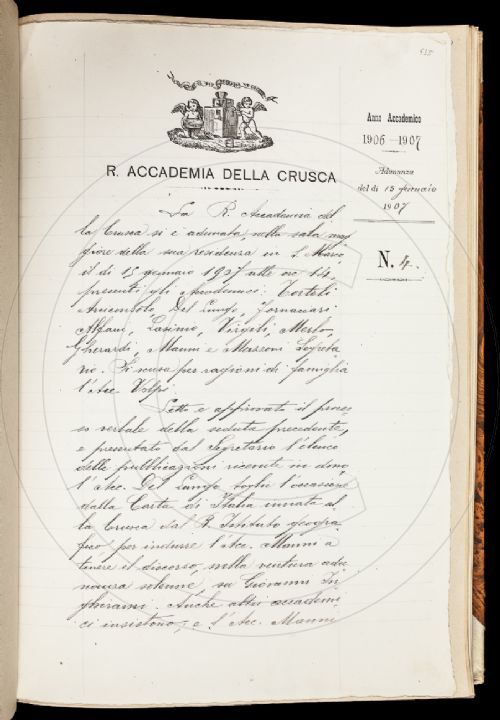 Anno Accademico
1906-1907
Adunanza
del dì 15 gennaio
1907
N. 4.
R. ACCADEMIA DELLA CRUSCA
La R. Accademia del
la Crusca si è adunata, nella sala mag
giore della sua residenza in S. Marco,
il dì 15 gennaio 1907 alle ore 14,
presenti gli Accademici: Tortoli
Arciconsolo, Del Lungo, Fornaciari
Alfani, Rasimo, Virgili, Merlo,
Gherardi, Manni e Mazzoni Segreta
rio. Si scusa per ragioni di famiglia
l'Acc. Volpi.
Letto e approvato il proces
so verbale della seduta precedente,
e presentato dal Segretario l'elenco
delle pubblicazioni ricevute in dono,
l'Acc. Del Lungo toglie l'occasione
dalla Carta di Italia inviata al
la Crusca dal R. Istituto geogra
fico per indurre l'Acc. Manni a
tenere il discorso, nella ventura adu
nanza solenne, su Giovanni In
ghirami. Anche altri accademi
ci insistono; e l'Acc. Manni